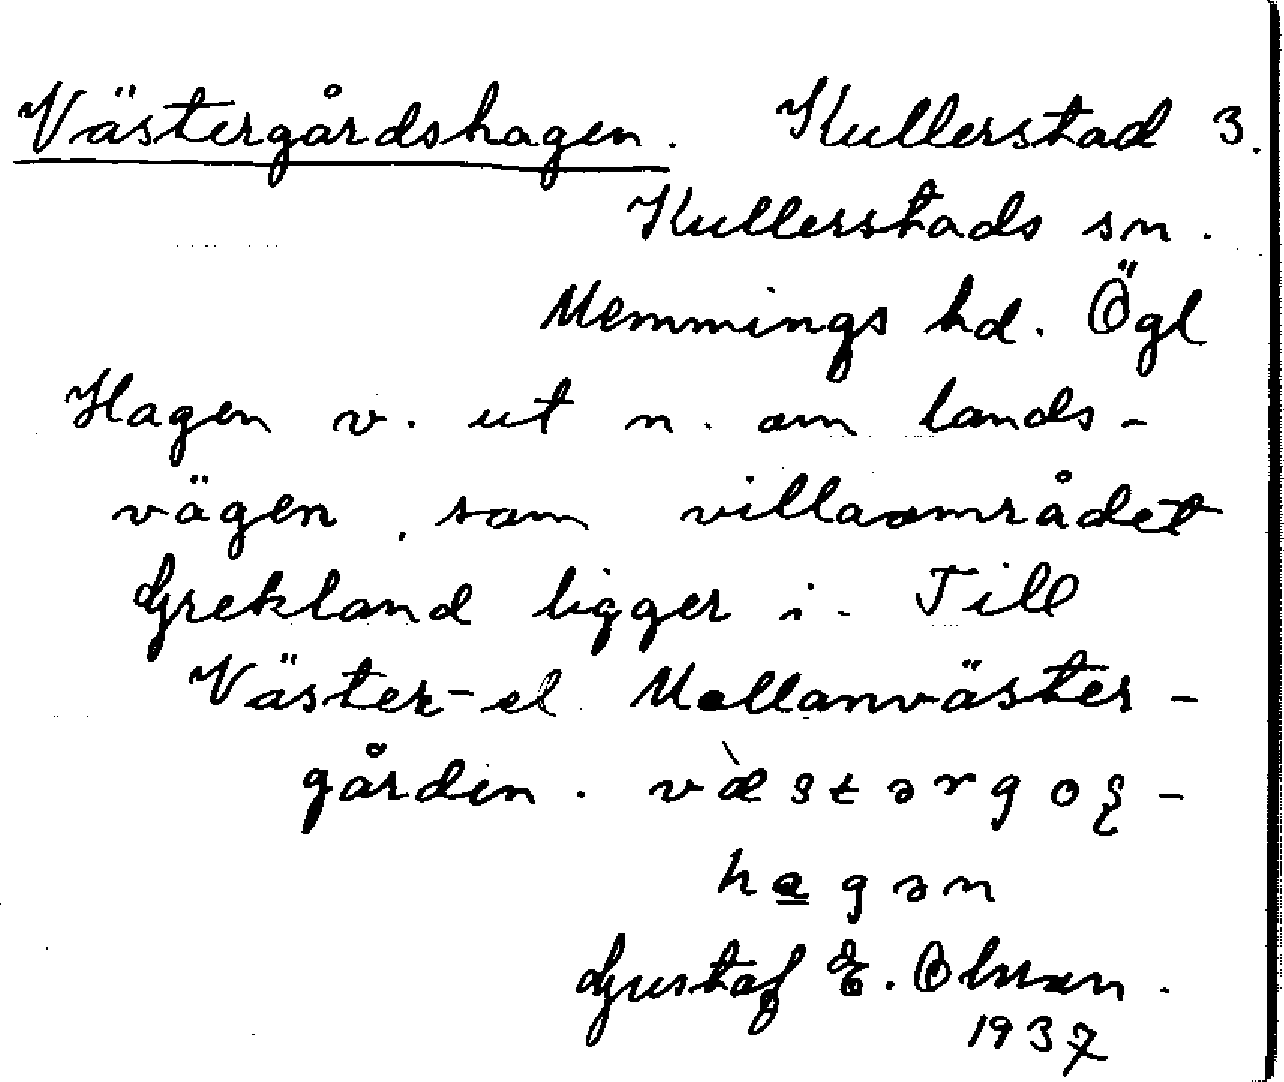 Västergårdshagen. Kullerstad 3.
Kullerstads sn.
Memmings hd. Ögl
Hagen v. ut n. om lands-
vägen, som villaområdet
Grekland ligger i. Till
Väster- el Mellanväster-
gården. væ̀stərgoʂ-
hagən
Gustaf E. Olsson.
1937